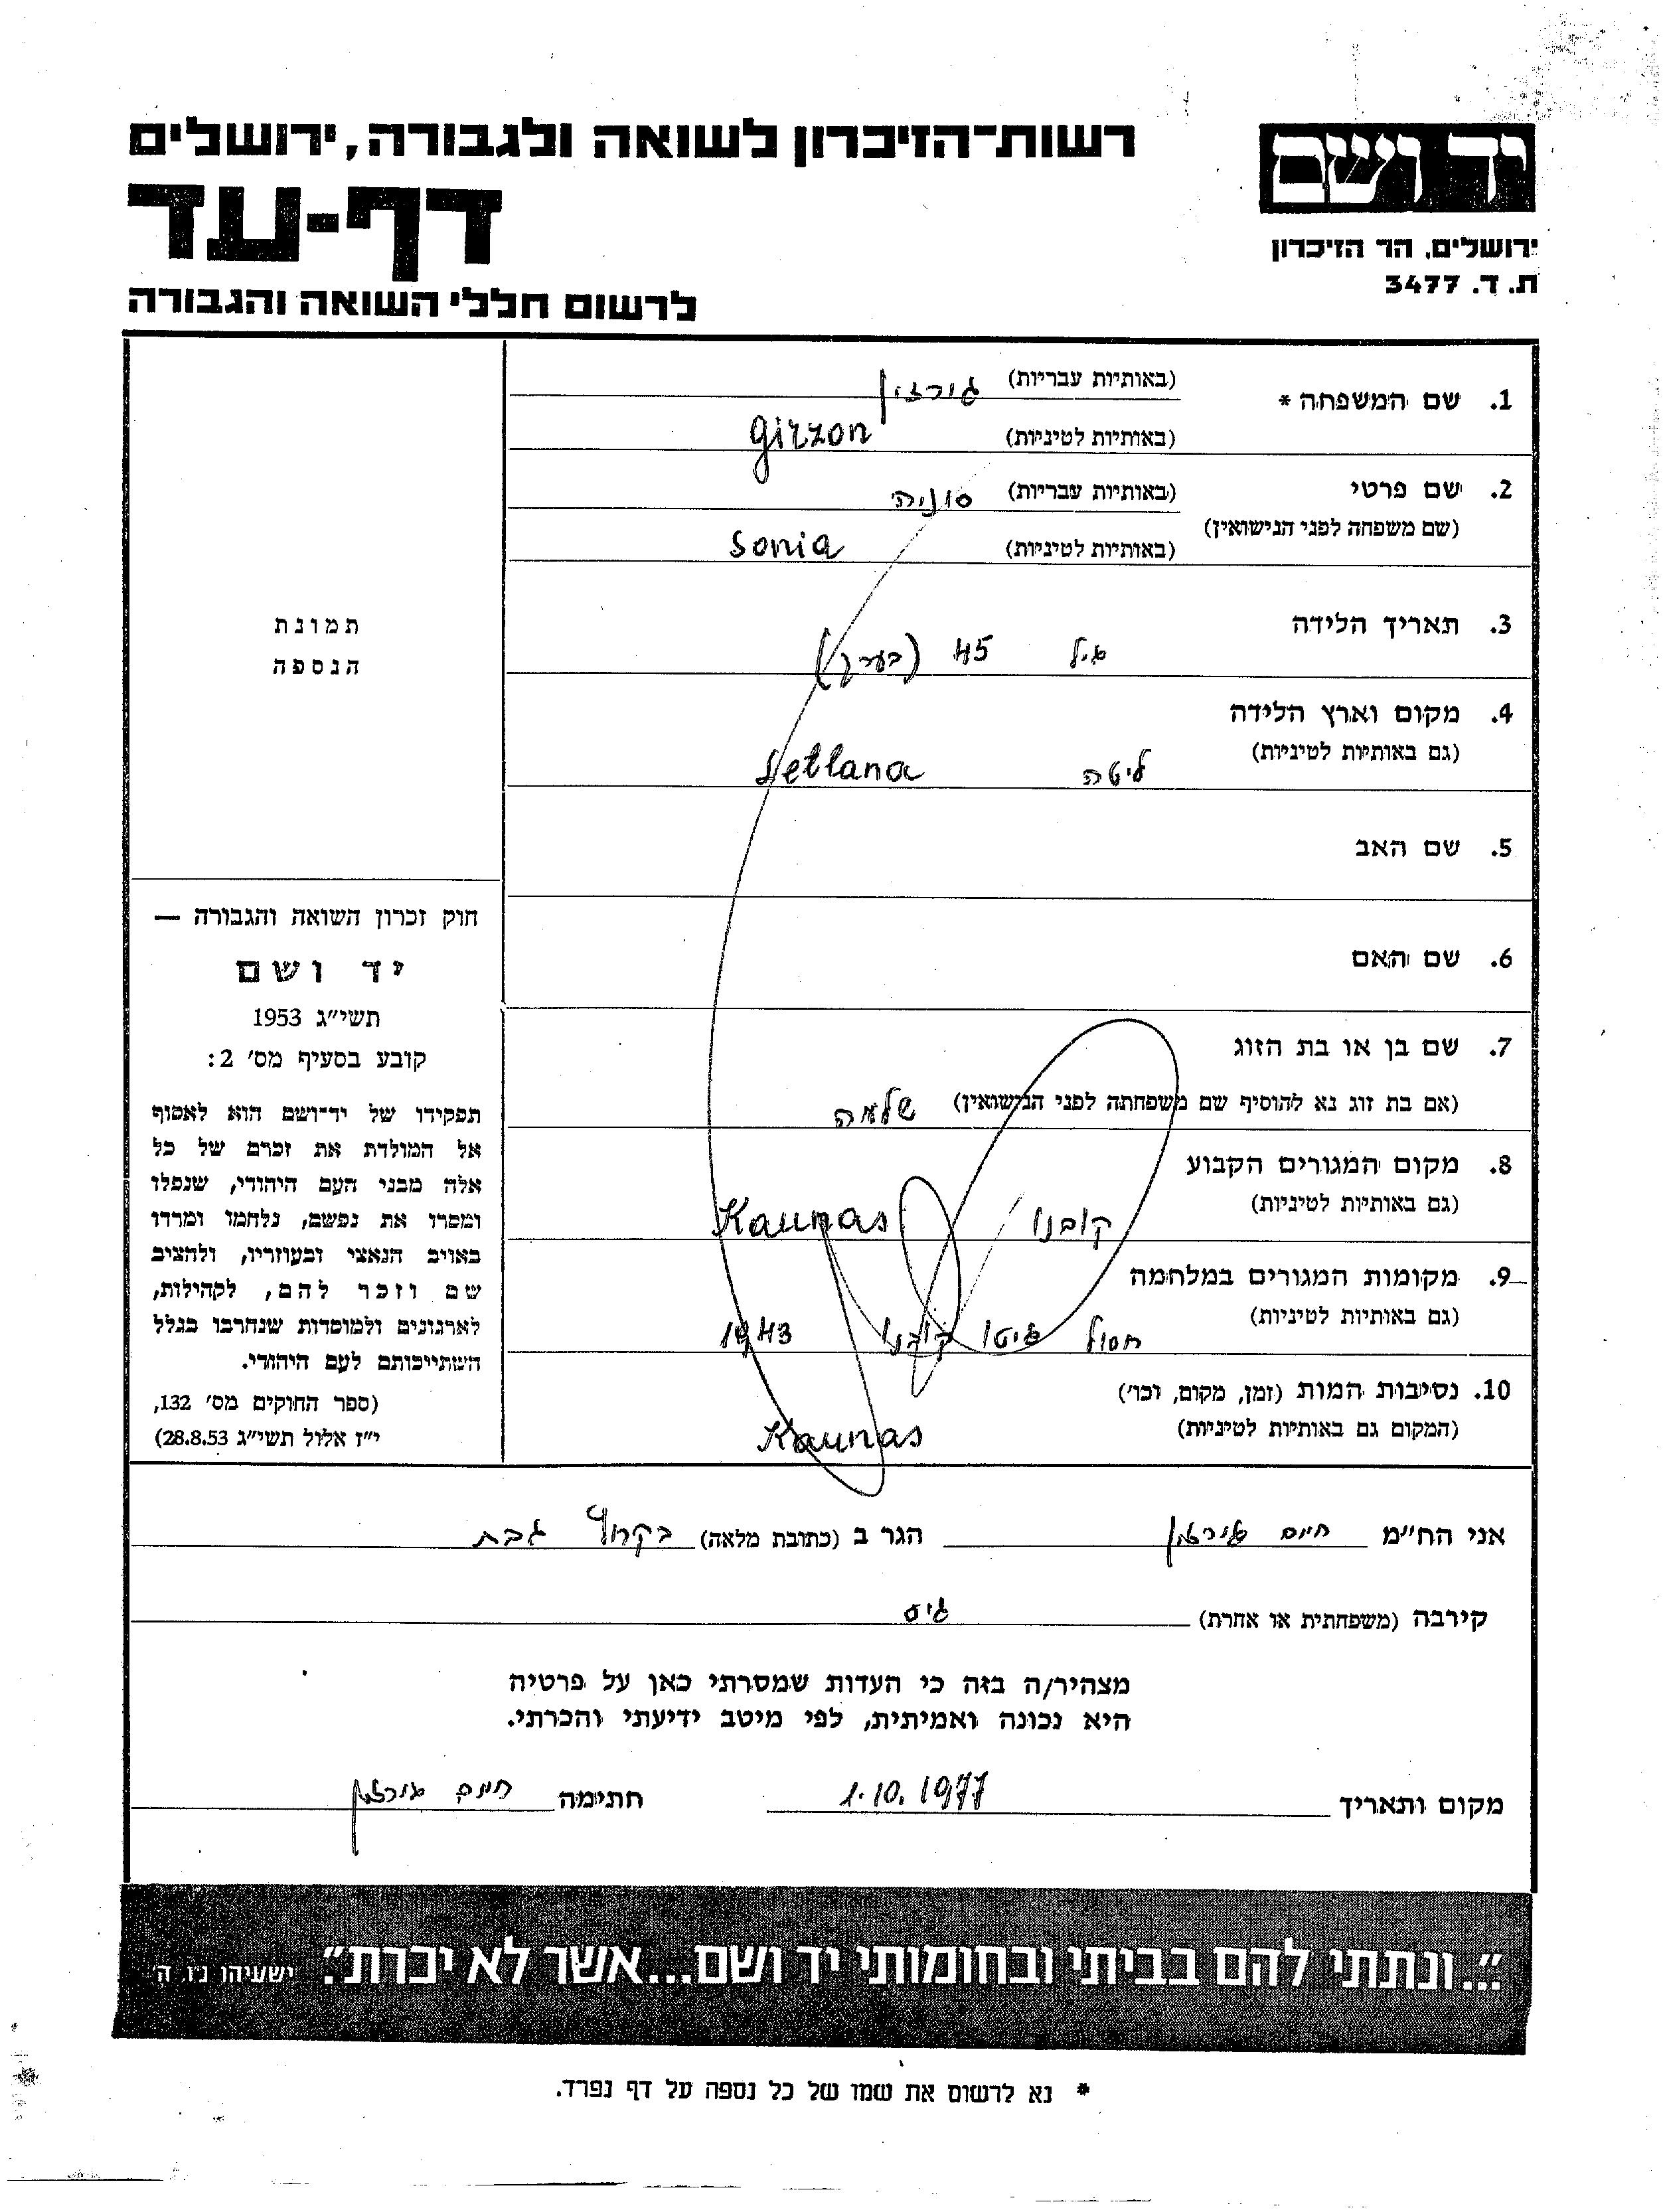 רשות־הזיכרון לשואה ולגבורה, ירושלים
דף-עד
לרשום חללי השואה והגבורה
יד ושם
ירושלים, הר הזיכרון
ת. ד. 3477
1. שם המשפחה *
(באותיות עבריות) גירזון
(באותיות לטיניות) Girzon
2. שם פרטי
(שם משפחה לפני הנישואין)
(באותיות עבריות) סוניה
(באותיות לטיניות) Sonia
3. תאריך הלידה
גיל 45 (בערך)
4. מקום וארץ הלידה
(גם באותיות לטיניות)
ליטה
5. שם האב
6. שם האם
7. שם בן או בת הזוג
(אם בת זוג נא להוסיף שם משפחתה לפני הנישואין) שלמה
8. מקום המגורים הקבוע
(גם באותיות לטיניות)
קובנו Kaunas
9. מקומות המגורים במלחמה
(גם באותיות לטיניות)
חסול גיטו קובנו 1943
10. נסיבות המות (זמן, מקום, וכו')
(המקום גם באותיות לטיניות)
Kaunas
תמונת
הנספה
חוק זכרון השואה והגבורה —
יד ושם
תשי״ג 1953
קובע בסעיף מס׳ 2:
תפקידו של יד־ושם הוא לאסוף
אל המולדת את זכרם של כל
אלה מבני העם היהודי, שנפלו
ומסרו את נפשם, נלחמו ומרדו
באויב הנאצי ובעוזריו, ולהציב
שם וזכר להם, לקהילות,
לארגונים ולמוסדות שנחרבו בגלל
השתייכותם לעם היהודי.
(ספר החוקים מס׳ 132,
י״ז אלול תשי״ג 28.8.53)
אני הח״מ חיים הגר ב (כתובת מלאה) גבת
קירבה (משפחתית או אחרת) גיס
מצהיר/ה בזה כי העדות שמסרתי כאן על פרטיה
היא נכונה ואמיתית, לפי מיטב ידיעתי והכרתי.
מקום ותאריך 1.10.1977 חתימה חיים
״...ונתתי להם בביתי ובחומותי יד ושם...אשר לא יכרת״. ישעיהו נ״ו ה׳
* נא לרשום את שמו של כל נספה על דף נפרד.